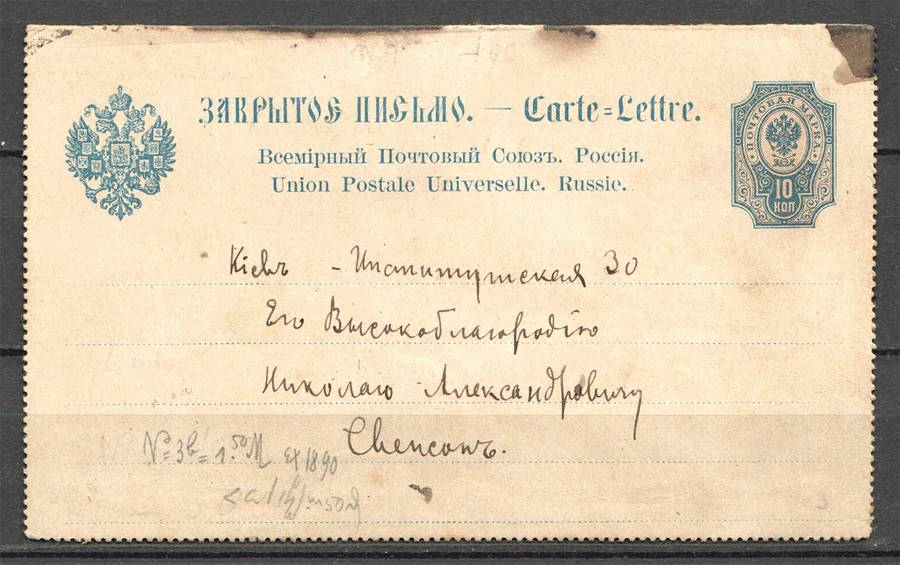 ЗАКРЫТОЕ ПИСЬМО. — Carte=Lettre.
Всемірный Почтовый Союзъ. Россія.
Union Postale Universelle. Russie.
ПОЧТОВАЯ МАРКА
10
КОП
Кіевъ - Институтская 30
Его Высокоблагородію
Николаю Александровичу
Свенсонъ.
№=3b=1.50M Ex 1890